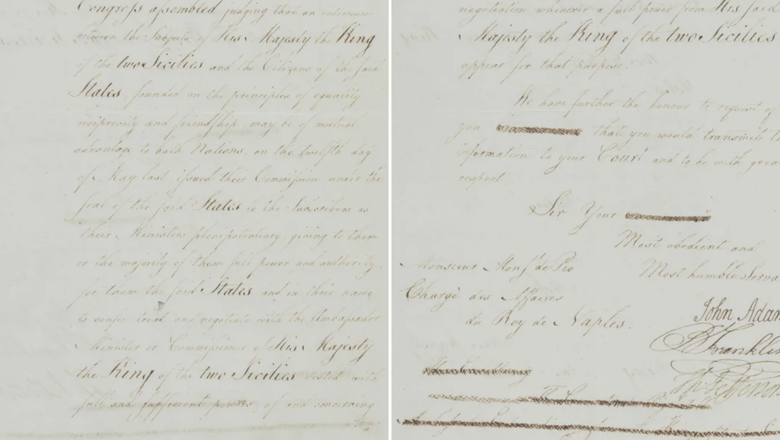 Congress assembled judging that an intercourse
between the Subjects of His Majesty the King
of the two Sicilies and the Citizens of the said
States, founded on the principles of equality
reciprocity and friendship may be of mutual
advantage to both Nations, on the twelfth day
of May last issued their Commission under the
seal of the said States to the Subscribers as
their Ministers plenipotentiary, giving to them
or the majority of them full power and authority,
for them the said States and in their name
to confer treat and negotiate with the Ambassador
Minister or Commissioner of His Majesty
the King of the two Sicilies vested with
full and sufficient powers, of and concerning
negotiation whenever a full power from His said
Majesty the King of the two Sicilies
appear for that purpose.
We have further the honour to request of
you that you would transmit
information to your Court and to be with great
respect
Sir Your
Most obedient and
Most humble
Monsieur de Pio
Chargé des Affaires
du Roy de Naples.
John Adam
B Franklin
Th Jefferson